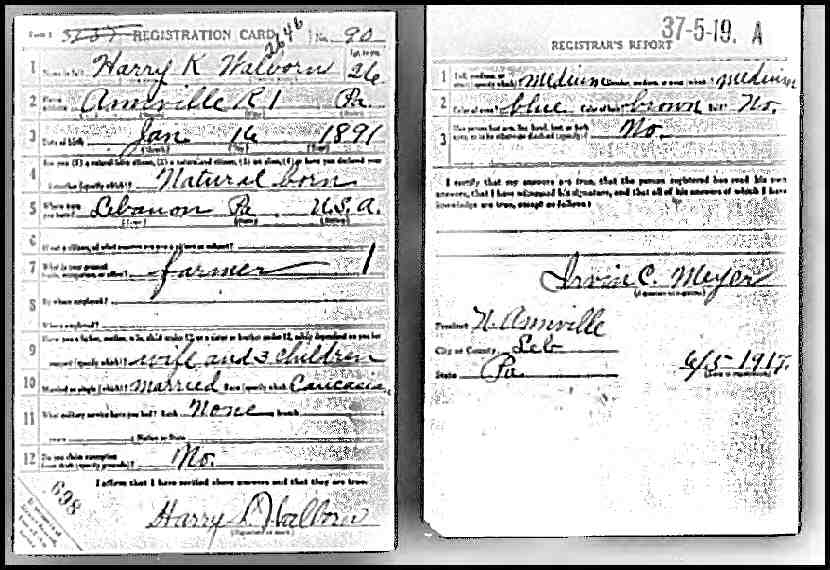 Form 1 5237 REGISTRATION CARD No. 90
2646
1 Name in full Harry K Walborn Age, in yrs. 26
2 Home address Annville R 1 Pa
3 Date of birth Jan 16 1891
(Month) (Day) (Year)
4 Are you (1) a natural-born citizen, (2) a naturalized citizen, (3) an alien, (4) or have you declared your
intention (specify which)? Natural born
5 Where were you born? Lebanon Pa U.S.A.
(Town) (State) (Nation)
6 If not a citizen, of what country are you a citizen or subject?
7 What is your present trade, occupation, or office? farmer 1
8 By whom employed?
Where employed?
9 Have you a father, mother, wife, child under 12, or a sister or brother under 12, solely dependent on you for
support (specify which)? wife and 3 children
10 Married or single (which)? Married Race (specify which)? Caucasian
11 What military service have you had? Rank None branch
years Nation or State
12 Do you claim exemption from draft (specify grounds)? No.
I affirm that I have verified above answers and that they are true.
698
Harry Walborn
(Signature or mark)
37-5-19. A
REGISTRAR'S REPORT
1 Tall, medium, or short (specify which)? medium Slender, medium, or stout (which)? medium
2 Color of eyes? blue Color of hair? brown Bald? No.
3 Has person lost arm, leg, hand, foot, or both eyes, or is he otherwise disabled (specify)? No.
I certify that my answers are true, that the person registered has read his own
answers, that I have witnessed his signature, and that all of his answers of which I have
knowledge are true, except as follows:
Irvin C. Meyer
(Signature of registrar)
Precinct N. Annville
City or County Leb
State Pa 6/5 1917.
(Date of registration)